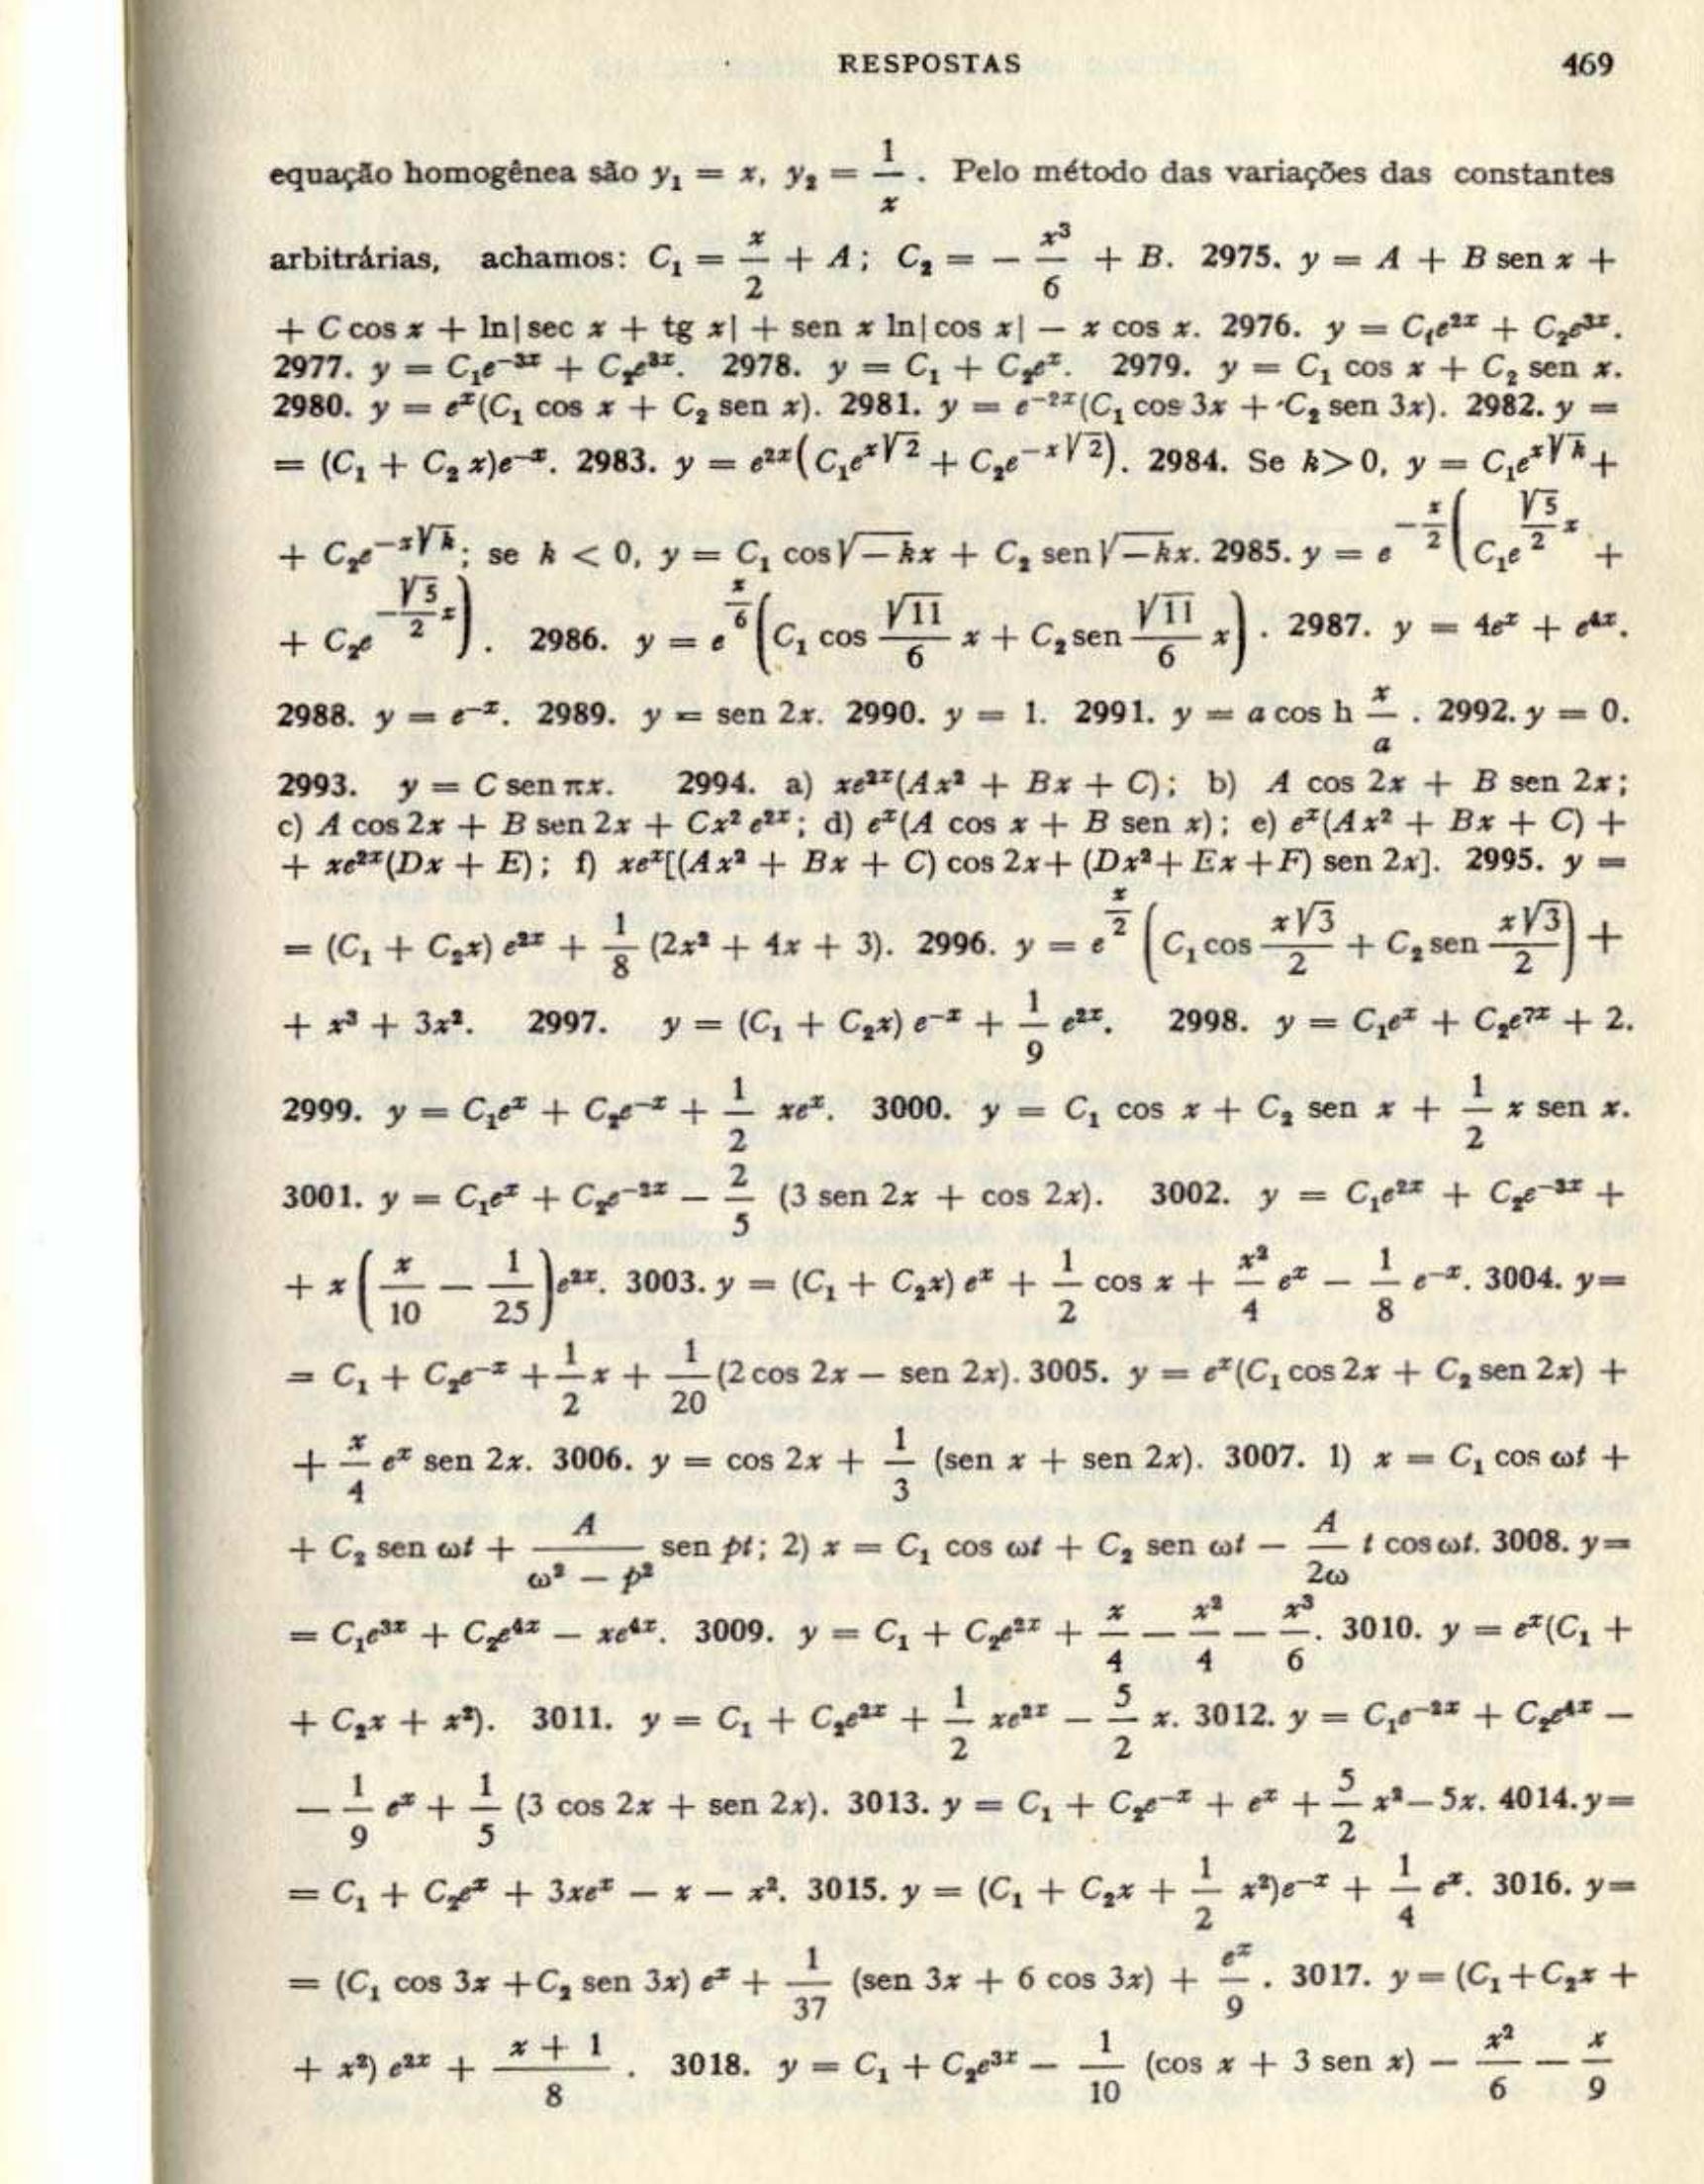 RESPOSTAS 469
equação homogênea são y₁ = x, y₂ = 1/x . Pelo método das variações das constantes
arbitrárias, achamos: C₁ = x/2 + A; C₂ = − x³/6 + B. 2975. y = A + B sen x +
+ C cos x + ln|sec x + tg x| + sen x ln|cos x| − x cos x. 2976. y = C₁e²ˣ + C₂e³ˣ.
2977. y = C₁e⁻³ˣ + C₂e³ˣ. 2978. y = C₁ + C₂eˣ. 2979. y = C₁ cos x + C₂ sen x.
2980. y = eˣ(C₁ cos x + C₂ sen x). 2981. y = e⁻²ˣ(C₁ cos 3x + C₂ sen 3x). 2982. y =
= (C₁ + C₂ x)e⁻ˣ. 2983. y = e²ˣ(C₁e^(x√2) + C₂e^(−x√2)). 2984. Se k>0, y = C₁e^(x√k) +
+ C₂e^(−x√k); se k < 0, y = C₁ cos√−kx + C₂ sen√−kx. 2985. y = e^(−x/2) (C₁e^((√5/2)x) +
+ C₂e^(−(√5/2)x)). 2986. y = e^(x/6) (C₁ cos (√11/6) x + C₂ sen (√11/6) x). 2987. y = 4eˣ + e⁴ˣ.
2988. y = e⁻ˣ. 2989. y = sen 2x. 2990. y = 1. 2991. y = a cos h x/a . 2992. y = 0.
2993. y = C sen πx. 2994. a) xe²ˣ(Ax² + Bx + C); b) A cos 2x + B sen 2x;
c) A cos 2x + B sen 2x + Cx² e²ˣ; d) eˣ(A cos x + B sen x); e) eˣ(Ax² + Bx + C) +
+ xe²ˣ(Dx + E); f) xeˣ[(Ax² + Bx + C) cos 2x+ (Dx²+ Ex +F) sen 2x]. 2995. y =
= (C₁ + C₂x) e²ˣ + 1/8 (2x² + 4x + 3). 2996. y = e^(x/2) (C₁ cos x√3/2 + C₂ sen x√3/2) +
+ x³ + 3x². 2997. y = (C₁ + C₂x) e⁻ˣ + 1/9 e²ˣ. 2998. y = C₁eˣ + C₂e⁷ˣ + 2.
2999. y = C₁eˣ + C₂e⁻ˣ + 1/2 xeˣ. 3000. y = C₁ cos x + C₂ sen x + 1/2 x sen x.
3001. y = C₁eˣ + C₂e⁻²ˣ − 2/5 (3 sen 2x + cos 2x). 3002. y = C₁e²ˣ + C₂e⁻³ˣ +
+ x (x/10 − 1/25) e²ˣ. 3003. y = (C₁ + C₂x) eˣ + 1/2 cos x + x²/4 eˣ − 1/8 e⁻ˣ. 3004. y=
= C₁ + C₂e⁻ˣ + 1/2 x + 1/20 (2 cos 2x − sen 2x). 3005. y = eˣ(C₁ cos 2x + C₂ sen 2x) +
+ x/4 eˣ sen 2x. 3006. y = cos 2x + 1/3 (sen x + sen 2x). 3007. 1) x = C₁ cos ωt +
+ C₂ sen ωt + A/(ω² − p²) sen pt; 2) x = C₁ cos ωt + C₂ sen ωt − A/2ω t cos ωt. 3008. y=
= C₁e³ˣ + C₂e⁴ˣ − xe⁴ˣ. 3009. y = C₁ + C₂e²ˣ + x/4 − x²/4 − x³/6. 3010. y = eˣ(C₁ +
+ C₂x + x²). 3011. y = C₁ + C₂e²ˣ + 1/2 xe²ˣ − 5/2 x. 3012. y = C₁e⁻²ˣ + C₂e⁴ˣ −
− 1/9 eˣ + 1/5 (3 cos 2x + sen 2x). 3013. y = C₁ + C₂e⁻ˣ + eˣ + 5/2 x²−5x. 4014. y=
= C₁ + C₂eˣ + 3xeˣ − x − x². 3015. y = (C₁ + C₂x + 1/2 x²)e⁻ˣ + 1/4 eˣ. 3016. y=
= (C₁ cos 3x +C₂ sen 3x) eˣ + 1/37 (sen 3x + 6 cos 3x) + eˣ/9 . 3017. y = (C₁+C₂x +
+ x²) e²ˣ + (x + 1)/8 . 3018. y = C₁ + C₂e³ˣ − 1/10 (cos x + 3 sen x) − x²/6 − x/9